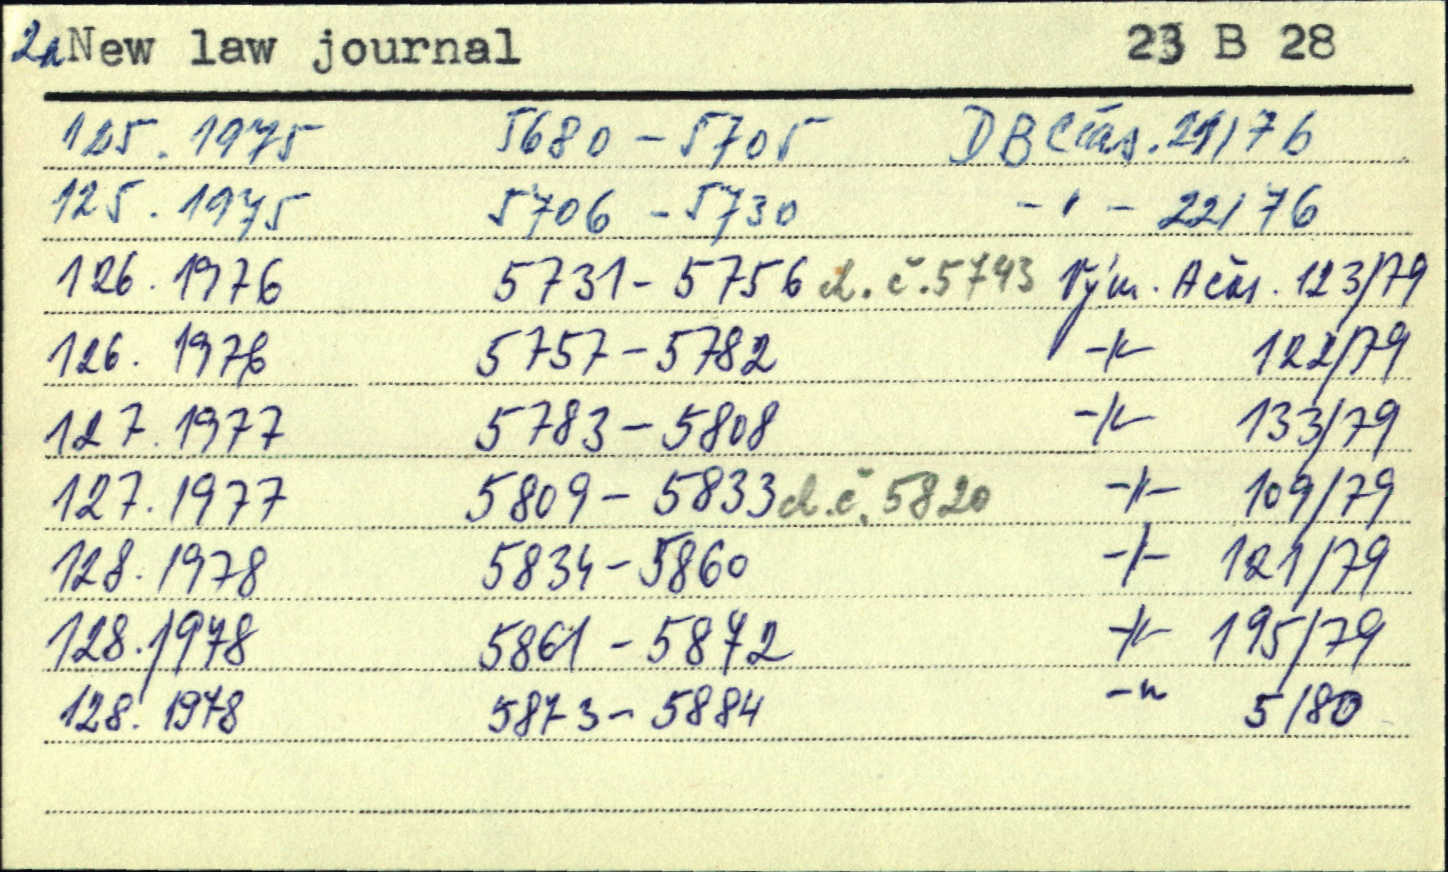 2a New law journal 23 B 28
125. 1975 5680 - 5705 DB Čás. 21/76
125. 1975 5706 - 5730 - " - 22/76
126. 1976 5731 - 5756 d. č. 5743 Vým. A čás. 123/79
126. 1976 5757 - 5782 - " - 122/79
127. 1977 5783 - 5808 - " - 133/79
127. 1977 5809 - 5833 d. č. 5820 - " - 109/79
128. 1978 5834 - 5860 - " - 121/79
128. 1978 5861 - 5872 - " - 195/79
128. 1978 5873 - 5884 - " 5/80